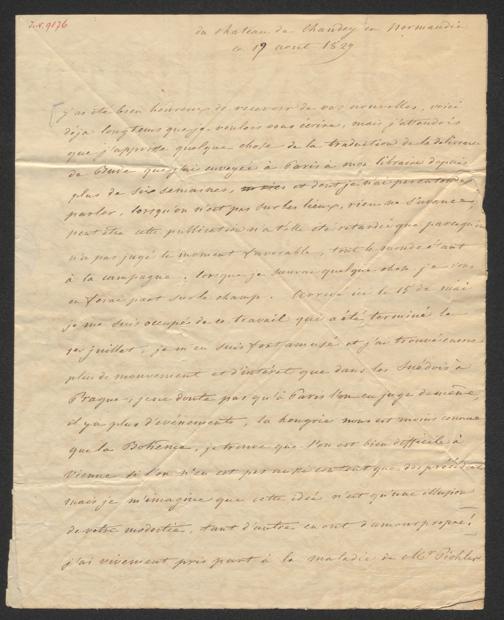 J.N. 9176
du chateau de Chandey en Normandie
ce 19 aout 1829
j'ai été bien heureux de recevoir de vos nouvelles, voici
déja longtems que je voulois vous écrire, mais j'attendois
que j'apprisse quelque chose de la traduction de la délivrance
de Bude que j'ai envoyée à Paris à mon libraire depuis
plus de six semaines, et dont je n'ai pas entendu
parler, lorsqu'on n'est pas sur les lieux, rien ne s'avance,
peut être cette publication n'a t'elle été retardée que parcequ'on
n'a pas jugé le moment favorable, tout le monde étant
à la campagne. lorsque je saurai quelque chose je vous
en ferai part sur le champ. Arrivé ici le 15 de mai
je me suis occupé de ce travail qui a été terminé le
1er juillet, je m'en suis fort amusé et j'ai trouvé encore
plus de mouvement et d'intérêt que dans les Suédois à
Prague, je ne doute pas qu'à Paris l'on en juge de même,
il y a plus d'événements, la hongrie nous est moins connue
que la Bohême, je trouve que l'on est bien difficile à
Vienne si l'on n'en est pas aussi content que des précédents
mais je m'imagine que cette idée n'est qu'une illusion
de votre modestie, tant d'autres en ont d'amour propre!
j'ai vivement pris part à la maladie de Mr Pichler